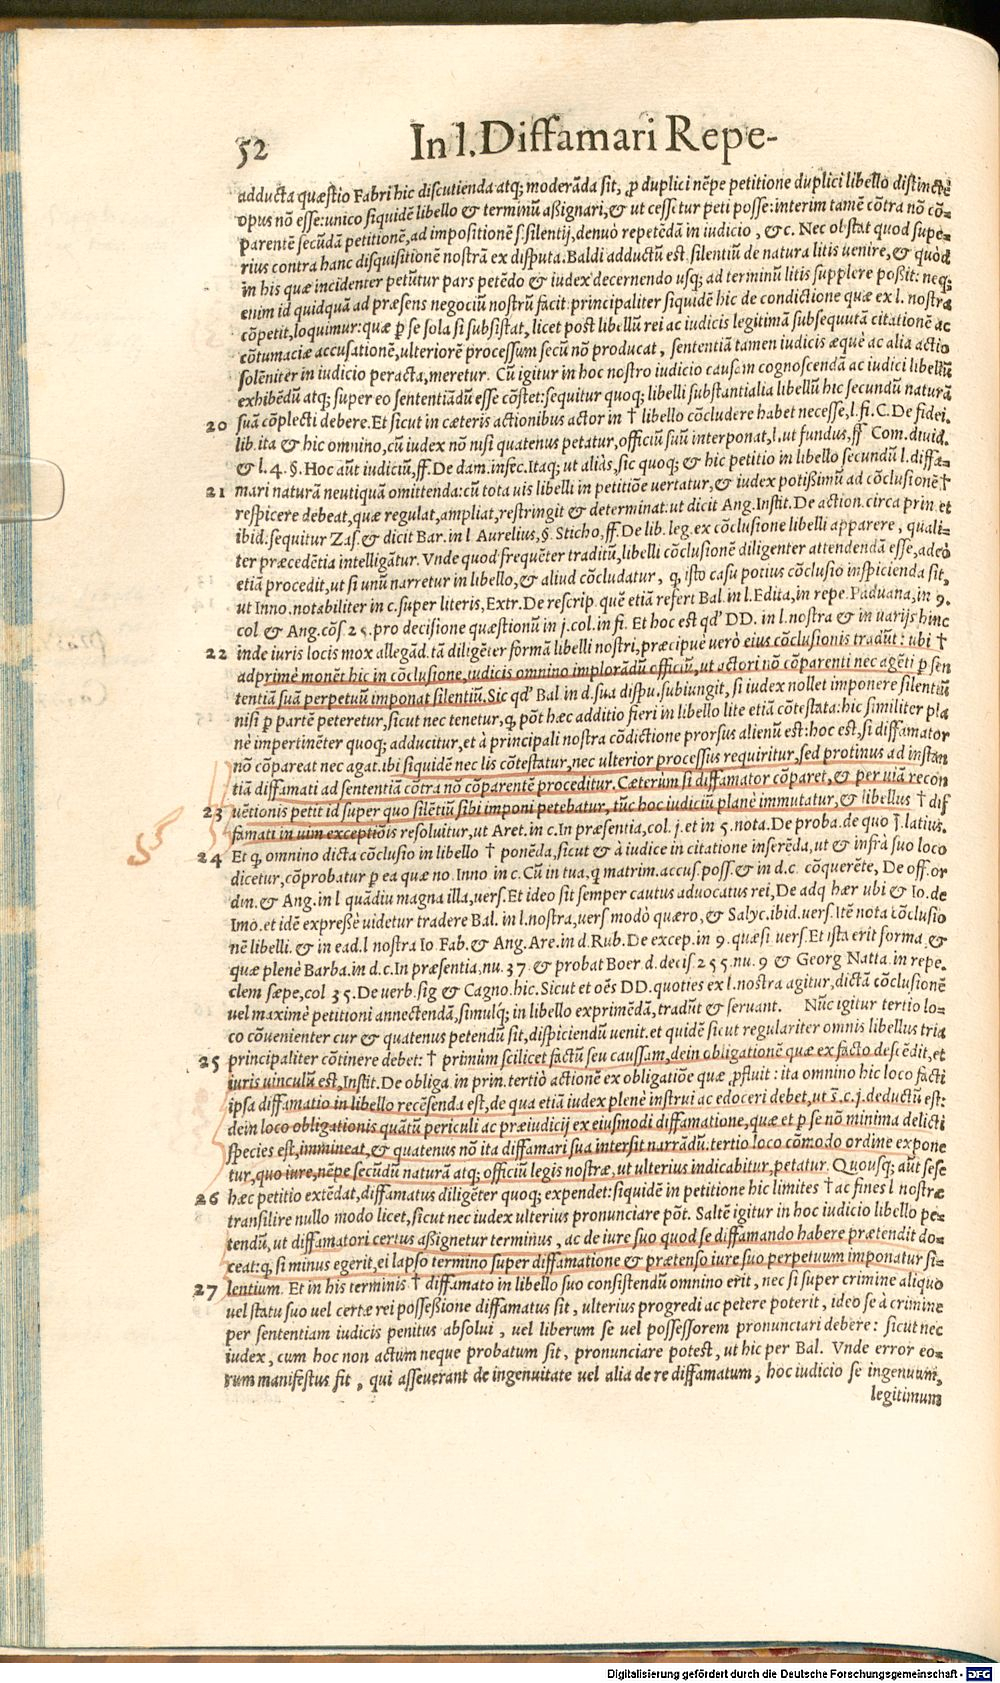 52 In l. Diffamari Repe-
adducta quæstio Fabri hic discutienda atq; moderãda sit, ꝑ duplici nẽpe petitione duplici libello distinctè
opus nõ esse: unico siquidẽ libello & terminũ aßignari, & ut cessetur peti posse: interim tamẽ cõtra nõ cõ-
parentẽ secũdã petitionẽ, ad impositionẽ s. silentij, denuò repetẽdã in iudicio, &c. Nec obstat quod supe-
rius contra hanc disquisitionẽ nostrã ex disputa. Baldi adductũ est silentiũ de natura litis uenire, & quòd
in his quæ incidenter petũtur pars petẽdo & iudex decernendo usq; ad terminũ litis supplere poßit: neq;
enim id quidquã ad præsens negociũ nostrũ facit. principaliter siquidẽ hic de condictione quæ ex l. nostra
cõpetit, loquimur: quæ ꝑ se sola si subsistat, licet post libellũ rei ac iudicis legitimã subsequutã citationẽ ac
cõtumaciæ accusationẽ, ulteriorẽ processum secũ nõ producat, sententiã tamen iudicis æquè ac alia actio
solẽniter in iudicio peracta, meretur. Cũ igitur in hoc nostro iudicio causam cognoscendã ac iudici libellũ
exhibẽdũ atq; super eo sententiãdũ esse cõstet: sequitur quoq; libelli substantialia libellũ hic secundũ naturã
20 suã cõplecti debere. Et sicut in cæteris actionibus actor in † libello cõcludere habet necesse, l. fi. C. De fidei.
lib. ita & hic omnino, cũ iudex nõ nisi quatenus petatur, officiũ suũ interponat, l. ut fundus, ff Com. diuid.
& l. 4. §. Hoc aũt iudiciũ, ff. De dam. infec. Itaq; ut aliàs, sic quoq; & hic petitio in libello secundũ l. diffa-
21 mari naturã neutiquã omittenda: cũ tota uis libelli in petitiõe uertatur, & iudex potißimũ ad cõclusionẽ †
respicere debeat, quæ regulat, ampliat, restringit & determinat. ut dicit Ang. Instit. De action. circa prin. et
ibid. sequitur Zas. & dicit Bar. in l Aurelius, §. Sticho, ff. De lib. leg. ex cõclusione libelli apparere, quali-
ter præcedẽtia intelligãtur. Vnde quod frequẽter traditũ, libelli cõclusionẽ diligenter attendendã esse, adeò
etiã procedit, ut si unũ narretur in libello, & aliud cõcludatur, q, isto casu potius cõclusio inspicienda sit,
ut Inno. notabiliter in c. super literis, Extr. De rescrip. quẽ etiã refert Bal. in l. Edita, in repe. Paduana, in 9.
col & Ang. cõs 25. pro decisione quæstionũ in j. col. in fi. Et hoc est qđ DD. in l. nostra & in uarijs hinc
22 inde iuris locis mox allegãd. tã diligẽter formã libelli nostri, præcipuè uerò eius cõclusionis tradũt: ubi †
adprimè monẽt hic in cõclusione, iudicis omnino implorãdũ officiũ, ut actori nõ cõparenti nec agẽti ꝑ sen
tentiã suã perpetuũ imponat silentiũ. Sic qđ Bal in d. sua dispu. subiungit, si iudex nollet imponere silentiũ
nisi ꝑ partẽ peteretur, sicut nec tenetur, q, põt hæc additio fieri in libello lite etiã cõtestata: hic similiter pla
nè impertinẽter quoq; adducitur, et à principali nostra cõdictione prorsus alienũ est: hoc est, si diffamator
nõ cõpareat nec agat. ibi siquidẽ nec lis cõtestatur, nec ulterior processus requiritur, sed protinus ad instan
tiã diffamati ad sententiã cõtra nõ cõparentẽ proceditur. Cæterùm si diffamator cõparet, & per uiã recon
23 uẽtionis petit id super quo silẽtiũ sibi imponi petebatur, tũc hoc iudiciũ planè immutatur, & libellus † dif
famati in uim exceptiõis resoluitur, ut Aret. in c. In præsentia, col. j. et in 5. nota. De proba. de quo j. latius.
24 Et q, omnino dicta cõclusio in libello † ponẽda, sicut & à iudice in citatione inserẽda, ut & infrà suo loco
dicetur, cõprobatur ꝑ ea quæ no. Inno in c. Cũ in tua, q matrim. accus. poss. & in d. c. cõquerẽte, De off. or
din. & Ang. in l quãdiu magna illa, uers. Et ideo sit semper cautus aduocatus rei, De adq hær ubi & Io. de
Imo. et idẽ expreßè uidetur tradere Bal. in l. nostra, uers modò quæro, & Salyc. ibid. uers. Itẽ nota cõclusio
nẽ libelli. & in ead. l nostra Io Fab. & Ang. Are. in d. Rub. De excep. in 9. quæsi uers. Et ista erit forma &
quæ plenè Barba. in d. c. In præsentia, nu. 37. & probat Boer d. decis. 255. nu. 9 & Georg Natta. in repe.
clem sæpe, col 35. De uerb. sig & Cagno. hic. Sicut et oẽs DD. quoties ex l. nostra agitur, dictã cõclusionẽ
uel maximè petitioni annectendã, simulq́; in libello exprimẽdã, tradũt & seruant. Nũc igitur tertio lo-
co cõuenienter cur & quatenus petendũ sit, dispiciendũ uenit. et quidẽ sicut regulariter omnis libellus tria
25 principaliter cõtinere debet: † primùm scilicet factũ seu caussam, dein obligationẽ quæ ex facto descẽdit, et
iuris uinculũ est, Instit. De obliga. in prin. tertiò actionẽ ex obligatiõe quæ ꝓfluit: ita omnino hic loco facti
ipsa diffamatio in libello recẽsenda est, de qua etiã iudex plenè instrui ac edoceri debet, ut s̃. c. j. deductũ est:
dein loco obligationis quãtũ periculi ac præiudicij ex eiusmodi diffamatione, quæ et ꝑ se nõ minima delicti
species est, immineat, & quatenus nõ ita diffamari sua intersit narrãdũ: tertio loco cõmodo ordine expone
tur, quo iure, nẽpe secũdũ naturã atq; officiũ legis nostræ, ut ulterius indicabitur, petatur. Quousq; aũt sese
26 hæc petitio extẽdat, diffamatus diligẽter quoq; expendet: siquidẽ in petitione hic limites † ac fines l nostræ
transilire nullo modo licet, sicut nec iudex ulterius pronunciare põt. Saltẽ igitur in hoc iudicio libello pe-
tendũ, ut diffamatori certus aßignetur terminus, ac de iure suo quod se diffamando habere prætendit do-
ceat: q, si minus egerit, ei lapso termino super diffamatione & prætenso iure suo perpetuum imponatur si-
27 lentium. Et in his terminis † diffamato in libello suo consistendũ omnino erit, nec si super crimine aliquo
uel statu suo uel certæ rei possessione diffamatus sit, ulterius progredi ac petere poterit, ideo se à crimine
per sententiam iudicis penitus absolui, uel liberum se uel possessorem pronunciari debere: sicut nec
iudex, cum hoc non actum neque probatum sit, pronunciare potest, ut hic per Bal. Vnde error eo-
rum manifestus sit, qui asseuerant de ingenuitate uel alia de re diffamatum, hoc iudicio se ingenuum,
legitimum
Digitalisierung gefördert durch die Deutsche Forschungsgemeinschaft - DFG